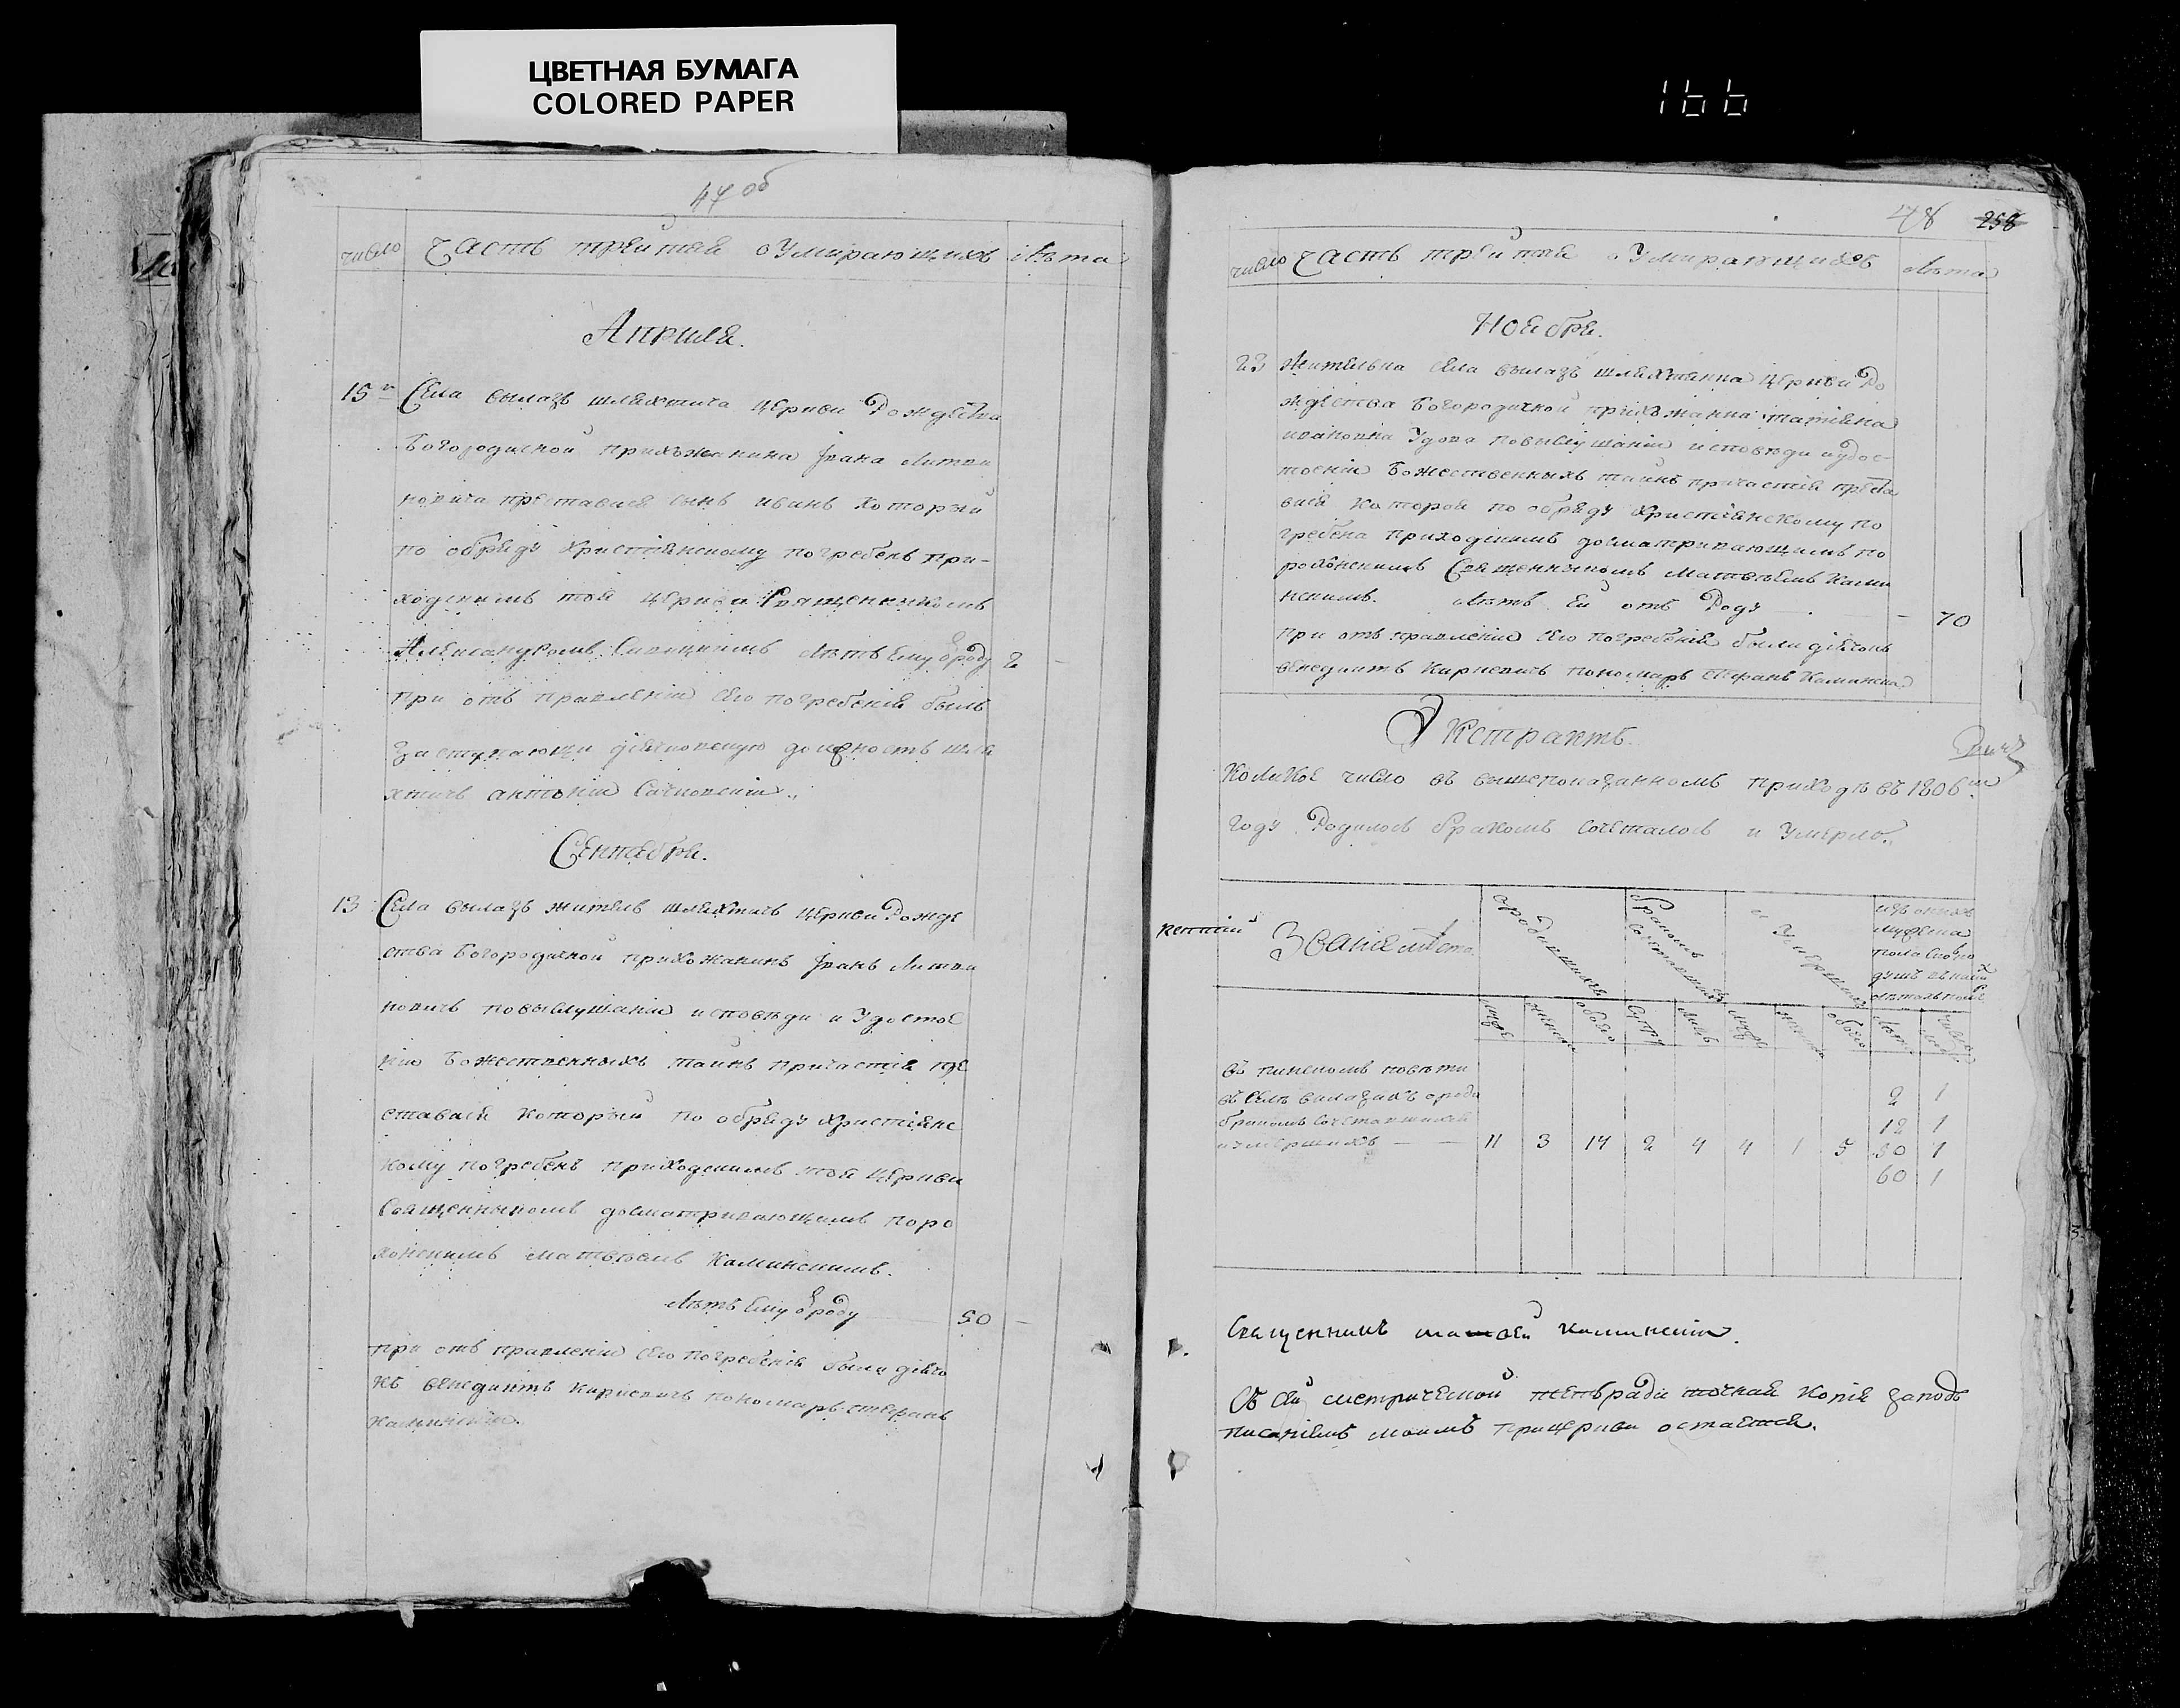 ЦВЕТНАЯ БУМАГА
COLORED PAPER
166
47 об
число Часть третая о Умирающихъ лѣта
Априля.
15 Села вылазъ шляхтича церкви Рождества
Богородичной прихожанина Iвана Литви
новича преставися сынъ иванъ который
по обряду христiянскому погребенъ при-
ходскимъ той церкви Священникомъ
Александромъ лѣтъ Ему 2
при отъ правленiи сего погребенiя былъ
дiячковскую должность шля
хтичъ антонiй
Сентября.
13 Села вылазъ житель шляхтичъ церкви Рожде
ства Богородичной прихожанинъ Iванъ Литви
новичъ повыслушанiи исповѣди и Удостое
нiю Божественныхъ таинъ причастiя пре
ставися который по обряду христiянс
кому погребенъ приходскимъ той церкви
Священникомъ досматривающимъ поро
хонскимъ матвѣемъ Каминскимъ.
лѣтъ Ему 50
при отъ правленiи сего погребенiя были дiячо
къ венедиктъ киркевичъ пономарь стефанъ
каминскiй.
48 258
число Часть третая о Умирающихъ лѣта
Ноября.
23 Жителька села вылазъ шляхтянка церкви Ро
ждества Богородичной прихожанка татiяна
ивановна Удова повыслушанiи исповѣди иудос-
тоенiи Божественныхъ таинъ причастiя преста
вися которая по обряду христiянскому по
гребена приходскимъ досматривающимъ по
рохонскимъ Священникомъ матвѣемъ Ками
нскимъ. лѣтъ Ей отъ Роду 70
при отъ правленiи сего погребенiя были дiячокъ
венедиктъ киркевичъ пономарь стефанъ Каминскiй
Экстрактъ.
Коликое число въ вышепоказанномъ приходѣ въ 1806
году Родилось бракомъ сочеталось и Умерло.
Званiе мѣста
о родившихся
бракомъ сочетавшихся
и Умершихъ
изъ оныхъ
мужеска
пола
въ пинскомъ повѣти
въ селѣ вилазахъ
бракомъ сочетавшихся
и умершихъ — — 11 3 14 2 4 4 1 5
2 1
12 1
50 1
60 1
Священникъ матвей каминскiй.
Съ сей метрической тетъради точная копiя заподъ
писанiемъ моимъ прицеркви остается.